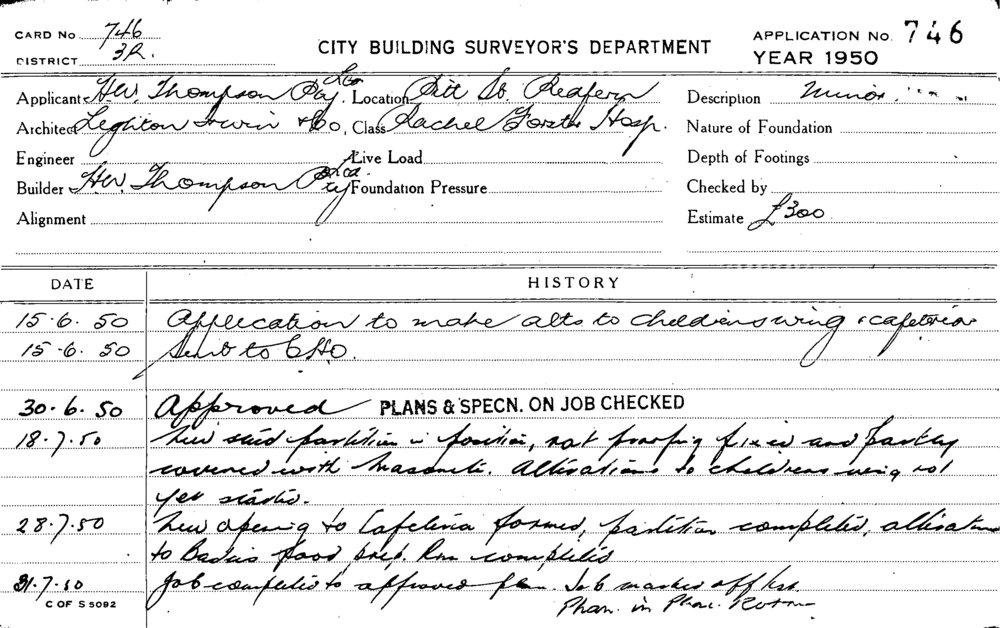 CARD No 746
DISTRICT 3R.
CITY BUILDING SURVEYOR'S DEPARTMENT
APPLICATION No. 746
YEAR 1950
Applicant H.W. Thompson Pty. Ltd Location Pitt St. Redfern Description Minor
Architect Leighton Irwin & Co, Class Rachel Forster Hosp. Nature of Foundation
Engineer Live Load Depth of Footings
Builder H.W. Thompson Pty Ltd. Foundation Pressure Checked by
Alignment Estimate £300
DATE HISTORY
15.6.50 Application to make alts to childrens wing & cafeteria
15.6.50 Sent to CHO.
30.6.50 Approved PLANS & SPECN. ON JOB CHECKED
18.7.50 New stud partition in position, rat proofing fixed and partly
covered with masonite. Alterations to childrens wing not
yet started.
28.7.50 New opening to Cafeteria formed, partition completed, alterations
to food prep. Rm completed
31.7.50 Job completed to approved plan. Job marked off
Plan. in Plan. Room
C OF S 5092